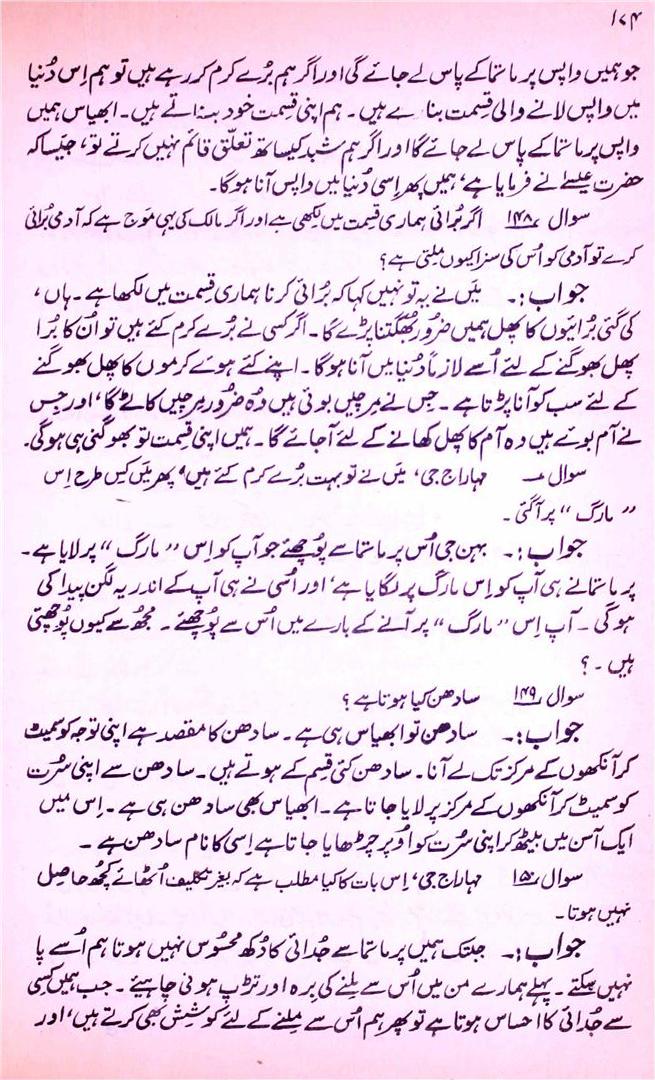 ۱۷۴
جو ہمیں واپس پرماتما کے پاس لے جائے گی اور اگر ہم بُرے کرم کر رہے ہیں تو ہم اِس دُنیا
میں واپس لانے والی قِسمت بنا رہے ہیں۔ ہم اپنی قِسمت خود بناتے ہیں۔ ابھیاس ہمیں
واپس پرماتما کے پاس لے جائے گا اور اگر ہم شبد کیساتھ تعلّق قائم نہیں کرتے تو، جَیسا کہ
حضرت عیسےٰ نے فرمایا ہے، ہمیں پھر اِسی دُنیا میں واپس آنا ہوگا۔
سوال ۱۴۸ اگر بُرائی ہماری قسمت میں لکھی ہے اور اگر مالک کی یہی مَوج ہے کہ آدمی بُرائی
کرے تو آدمی کو اُس کی سزا کیوں ملتی ہے؟
جواب:۔ مَیں نے یہ تو نہیں کہا کہ بُرائی کرنا ہماری قِسمت میں لکھا ہے۔ ہاں،
کی گئی بُرائیوں کا پھل ہمیں ضرُور بھُگتنا پڑے گا۔ اگر کسی نے بُرے کرم کئے ہیں تو اُن کا بُرا
پھل بھوگنے کے لئے اُسے لازماً دُنیا میں آنا ہوگا۔ اپنے کئے ہوئے کرموں کا پھل بھوگنے
کے لئے سب کو آنا پڑتا ہے۔ جِس نے مِرچیں بوئی ہیں وُہ ضرُور مِرچیں کاٹے گا، اور جِس
نے آم بوئے ہیں وہ آم کا پھل کھانے کے لئے آجائے گا۔ ہمیں اپنی قِسمت تو بھوگنی ہی ہوگی۔
سوال ـــ مہاراج جی، مَیں نے تو بہت بُرے کرم کئے ہیں، پھر مَیں کِس طرح اِس
”مارگ“ پر آگئی۔
جواب:۔ بہن جی اُس پرماتما سے پُوچھئے جو آپ کو اِس ”مارگ“ پر لایا ہے۔
پرماتما نے ہی آپ کو اِس مارگ پر لگایا ہے، اور اُسی نے ہی آپ کے اندر یہ لگن پیدا کی
ہوگی۔ آپ اِس ”مارگ“ پر آنے کے بارے میں اُس سے پُوچھئے۔ مجھ سے کیوں پُوچھتی
ہیں۔؟
سوال ۱۴۹ سادھن کیا ہوتا ہے؟
جواب:۔ سادھن تو ابھیاس ہی ہے۔ سادھن کا مقصد ہے اپنی توجہ کو سمیٹ
کر آنکھوں کے مرکز تک لے آنا۔ سادھن کئی قِسم کے ہوتے ہیں۔ سادھن سے اپنی سُرت
کو سمیٹ کر آنکھوں کے مرکز پر لایا جاتا ہے۔ ابھیاس بھی سادھن ہی ہے۔ اِس میں
ایک آسن میں بیٹھ کر اپنی سُرت کو اُوپر چڑھایا جاتا ہے اِسی کا نام سادھن ہے۔
سوال ۱۵۰ مہاراج جی، اِس بات کا کیا مطلب ہے کہ بغیر تکلیف اُٹھائے کُچھ حاصِل
نہیں ہوتا۔
جواب:۔ جبتک ہمیں پرماتما سے جُدائی کا دُکھ محسُوس نہیں ہوتا ہم اُسے پا
نہیں سکتے۔ پہلے ہمارے من میں اُس سے مِلنے کی بِرہ اور تڑپ ہونی چاہیئے۔ جب ہمیں کِسی
سے جُدائی کا احساس ہوتا ہے تو پھر ہم اُس سے مِلنے کے لئے کوشِش بھی کرتے ہیں، اور